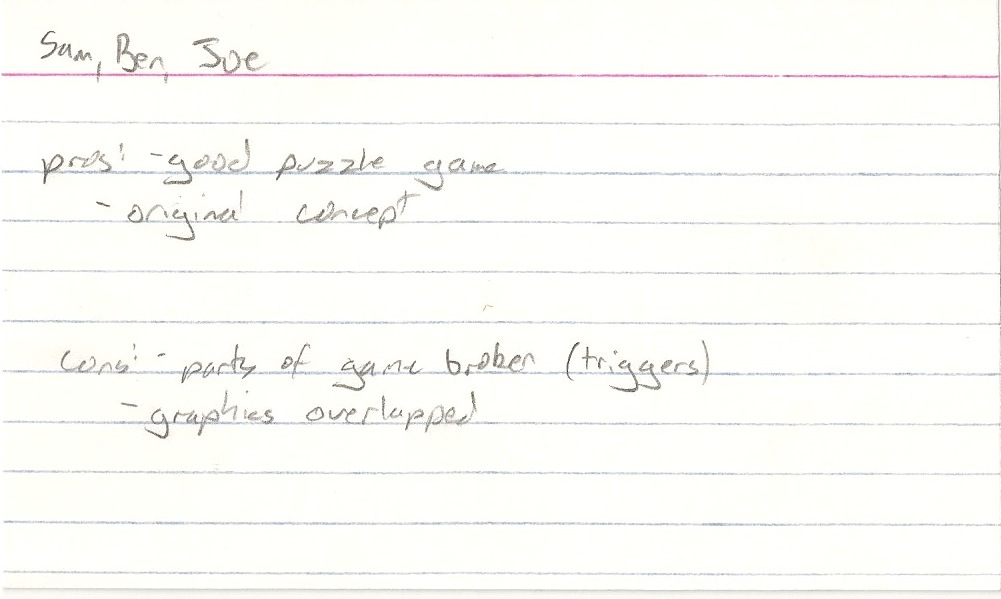 Sam, Ben, Joe
pros: - good puzzle game
- original concept
cons: - parts of game broken (triggers)
- graphics overlapped